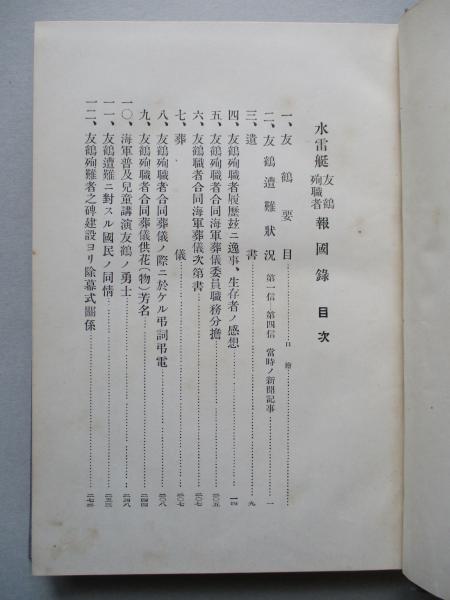 水雷艇 友鶴殉職者 報國錄 目次
一、友鶴要目……口繪
二、友鶴遭難狀況 第一信 第四信 當時ノ新聞記事……一
三、遺書……九
四、友鶴殉職者履歷玆ニ逸事、生存者ノ感想……一四
五、友鶴殉職者合同海軍葬儀委員職務分擔……二〇五
六、友鶴職者合同海軍葬儀次第書……二〇七
七、葬儀……二〇七
八、友鶴殉職者合同葬儀ノ際ニ於ケル弔詞弔電……二〇八
九、友鶴殉職者合同葬儀供花(物)芳名……二四四
一〇、海軍普及兒童講演友鶴ノ勇士……二四八
一一、友鶴遭難ニ對スル國民ノ同情……二五三
一二、友鶴殉難者之碑建設ヨリ除幕式關係……二七三